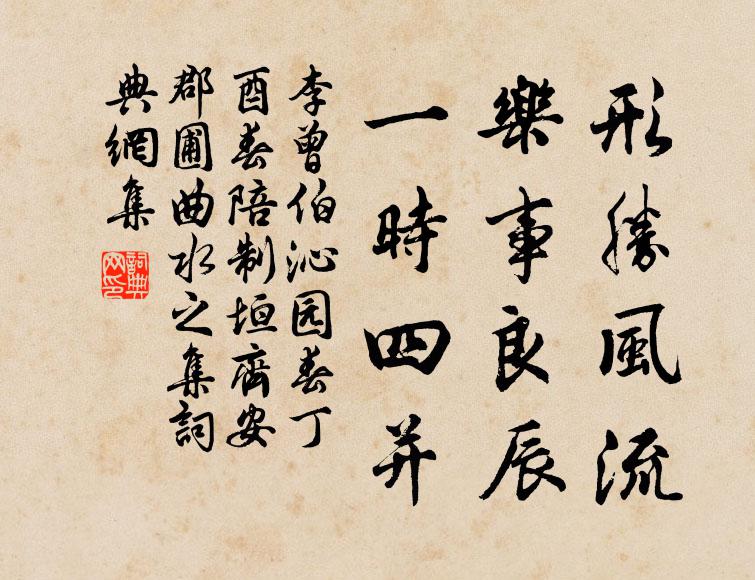 形勝風流
樂事良辰
一時四并
李曾伯沁园春丁
酉春陪制垣齊安
郡圃曲水之集詞
典網集
詞典网印